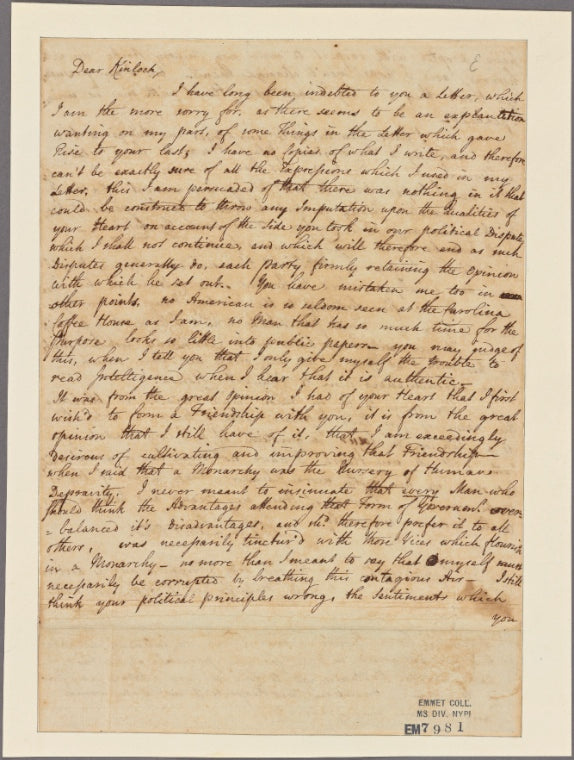 E
Dear Kinloch,
I have long been indebted to you a Letter, which
I am the more sorry for, as there seems to be an explanation
wanting on my part, of some Things in the Letter which gave
Rise to your last; I have no Copies of what I write, and therefore
can't be exactly sure of all the Expressions which I used in my
Letter, this I am persuaded of that there was nothing in it that
could be construed to throw any Imputation upon the Qualities of
your Heart on account of the Side you took in our political Dispute,
which I shall not continue, and which will therefore end as such
Disputes generally do, each Party firmly retaining the Opinion
with which he set out. You have mistaken me too in
other points. no American is so seldom seen at the Carolina
Coffee House as I am, no Man that has so much time for the
Purpose looks so little into public papers — you may judge of
this, when I tell you that I only give myself the trouble to
read Intelligence when I hear that it is authentic —
It was from the great Opinion I had of your Heart that I first
wish'd to form a Friendship with you, it is from the great
opinion that I still have of it, that I am exceedingly
Desirous of cultivating and improving that Friendship —
when I said that a Monarchy was the Nursery of Humane
Depravity. I never meant to insinuate that every Man who
should think the Advantages attending that Form of Governmt. over-
-balanced it's Disadvantages, and shd. therefore prefer it to all
others, was necessarily tinctur'd with those Vices which flourish
in a Monarchy — no more than I meant to say that I myself must
necessarily be corrupted by breathing this contagious Air — I still
think your political principles wrong, the Sentiments which
you
EMMET COLL.
MS. DIV. NYPL
EM7981